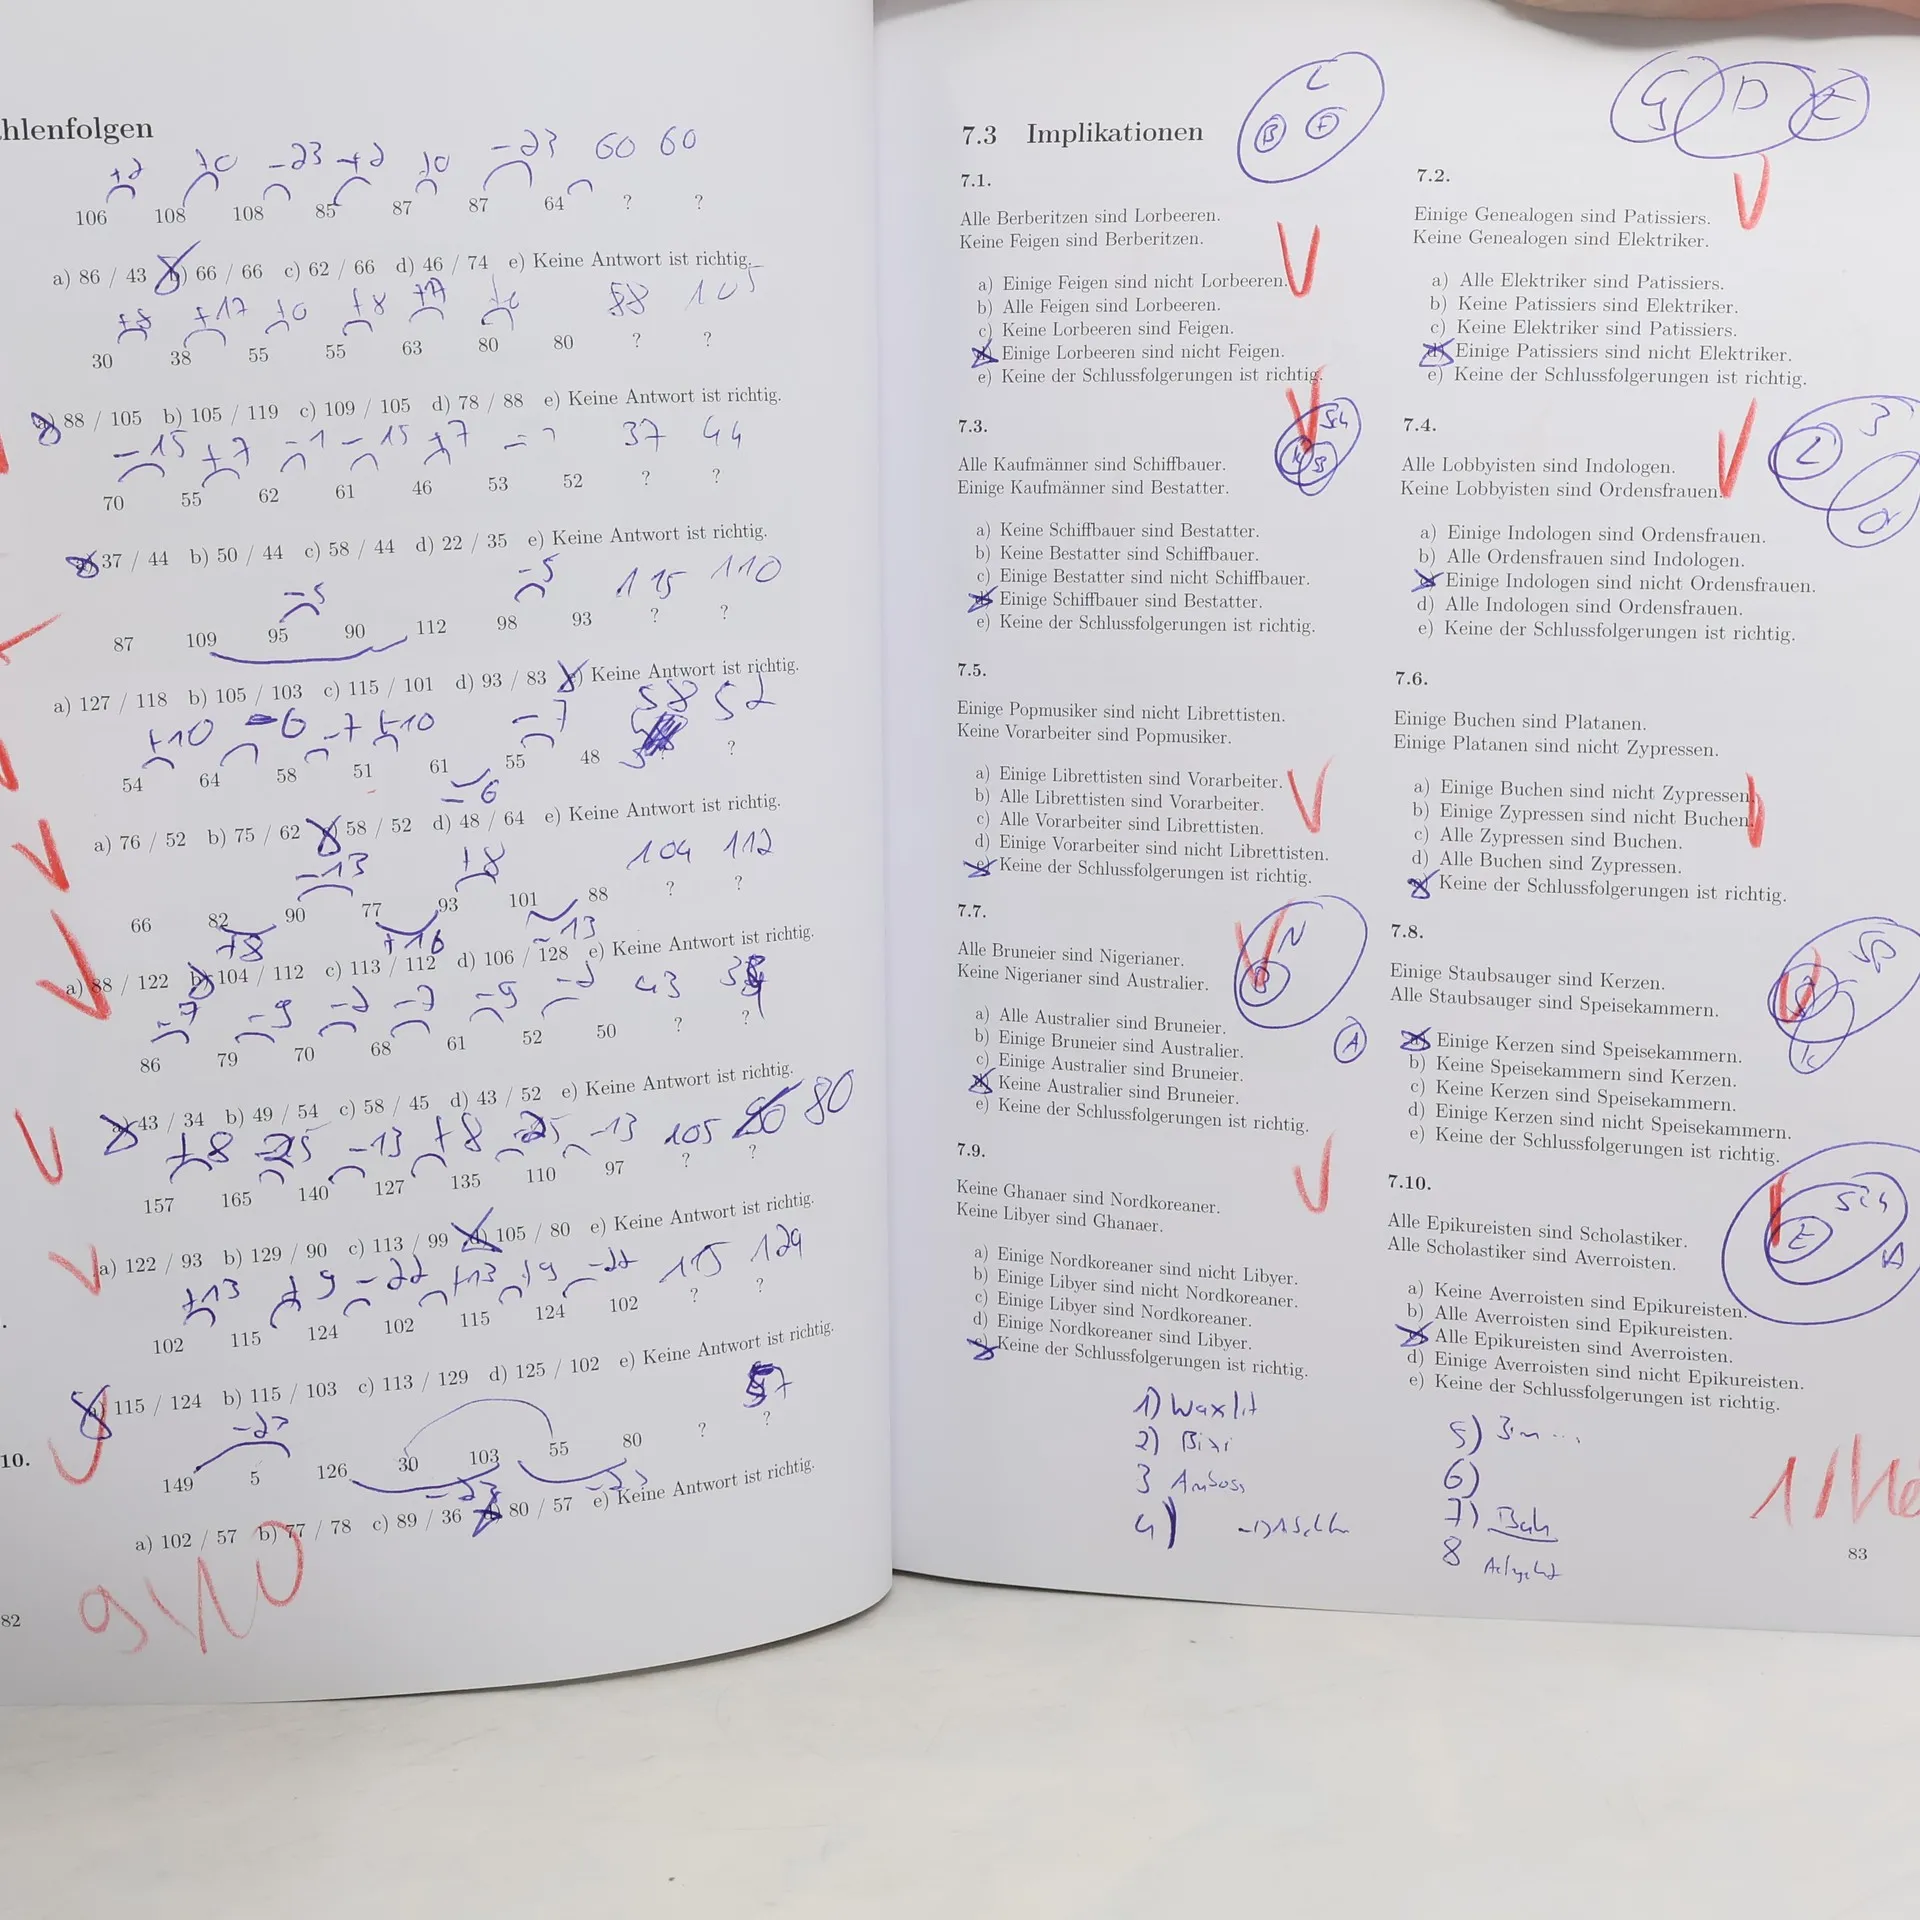 hlenfolgen
+2 +0 -23 +2 +0 -23 60 60
106 108 108 85 87 87 64 ? ?
a) 86 / 43 b) 66 / 66 c) 62 / 66 d) 46 / 74 e) Keine Antwort ist richtig.
+8 +17 +0 +8 +17 +0 88 105
30 38 55 55 63 80 80 ? ?
a) 88 / 105 b) 105 / 119 c) 109 / 105 d) 78 / 88 e) Keine Antwort ist richtig.
-15 +7 -1 -15 +7 37 44
70 55 62 61 46 53 52 ? ?
a) 37 / 44 b) 50 / 44 c) 58 / 44 d) 22 / 35 e) Keine Antwort ist richtig.
-5 -5 115 110
87 109 95 90 112 98 93 ? ?
a) 127 / 118 b) 105 / 103 c) 115 / 101 d) 93 / 83 e) Keine Antwort ist richtig.
+10 -6 -7 +10 -7 58 52
54 64 58 51 61 55 48 ? ?
-6
a) 76 / 52 b) 75 / 62 c) 58 / 52 d) 48 / 64 e) Keine Antwort ist richtig.
-13 +8 104 112
66 82 90 77 93 101 88 ? ?
+8 +16 -13
a) 88 / 122 b) 104 / 112 c) 113 / 112 d) 106 / 128 e) Keine Antwort ist richtig.
-7 -9 -2 -7 -9 -2 43 34
86 79 70 68 61 52 50 ? ?
a) 43 / 34 b) 49 / 54 c) 58 / 45 d) 43 / 52 e) Keine Antwort ist richtig.
+8 -25 -13 +8 -25 -13 105 80
157 165 140 127 135 110 97 ? ?
a) 122 / 93 b) 129 / 90 c) 113 / 99 d) 105 / 80 e) Keine Antwort ist richtig.
+13 +9 -22 +13 +9 -22 115 124
102 115 124 102 115 124 102 ? ?
a) 115 / 124 b) 115 / 103 c) 113 / 129 d) 125 / 102 e) Keine Antwort ist richtig.
-23 57
10. 149 5 126 30 103 55 80 ? ?
-23 -23
a) 102 / 57 b) 77 / 78 c) 89 / 36 d) 80 / 57 e) Keine Antwort ist richtig.
9/10
82
7.3 Implikationen
L
B F
7.1.
Alle Berberitzen sind Lorbeeren.
Keine Feigen sind Berberitzen.
a) Einige Feigen sind nicht Lorbeeren.
b) Alle Feigen sind Lorbeeren.
c) Keine Lorbeeren sind Feigen.
d) Einige Lorbeeren sind nicht Feigen.
e) Keine der Schlussfolgerungen ist richtig.
7.2.
Einige Genealogen sind Patissiers.
Keine Genealogen sind Elektriker.
a) Alle Elektriker sind Patissiers.
b) Keine Patissiers sind Elektriker.
c) Keine Elektriker sind Patissiers.
d) Einige Patissiers sind nicht Elektriker.
e) Keine der Schlussfolgerungen ist richtig.
7.3.
Alle Kaufmänner sind Schiffbauer.
Einige Kaufmänner sind Bestatter.
a) Keine Schiffbauer sind Bestatter.
b) Keine Bestatter sind Schiffbauer.
c) Einige Bestatter sind nicht Schiffbauer.
d) Einige Schiffbauer sind Bestatter.
e) Keine der Schlussfolgerungen ist richtig.
7.4.
Alle Lobbyisten sind Indologen.
Keine Lobbyisten sind Ordensfrauen.
a) Einige Indologen sind Ordensfrauen.
b) Alle Ordensfrauen sind Indologen.
c) Einige Indologen sind nicht Ordensfrauen.
d) Alle Indologen sind Ordensfrauen.
e) Keine der Schlussfolgerungen ist richtig.
7.5.
Einige Popmusiker sind nicht Librettisten.
Keine Vorarbeiter sind Popmusiker.
a) Einige Librettisten sind Vorarbeiter.
b) Alle Librettisten sind Vorarbeiter.
c) Alle Vorarbeiter sind Librettisten.
d) Einige Vorarbeiter sind nicht Librettisten.
e) Keine der Schlussfolgerungen ist richtig.
7.6.
Einige Buchen sind Platanen.
Einige Platanen sind nicht Zypressen.
a) Einige Buchen sind nicht Zypressen.
b) Einige Zypressen sind nicht Buchen.
c) Alle Zypressen sind Buchen.
d) Alle Buchen sind Zypressen.
e) Keine der Schlussfolgerungen ist richtig.
7.7.
N
B
A
Alle Bruneier sind Nigerianer.
Keine Nigerianer sind Australier.
a) Alle Australier sind Bruneier.
b) Einige Bruneier sind Australier.
c) Einige Australier sind Bruneier.
d) Keine Australier sind Bruneier.
e) Keine der Schlussfolgerungen ist richtig.
7.8.
Einige Staubsauger sind Kerzen.
Alle Staubsauger sind Speisekammern.
a) Einige Kerzen sind Speisekammern.
b) Keine Speisekammern sind Kerzen.
c) Keine Kerzen sind Speisekammern.
d) Einige Kerzen sind nicht Speisekammern.
e) Keine der Schlussfolgerungen ist richtig.
7.9.
Keine Ghanaer sind Nordkoreaner.
Keine Libyer sind Ghanaer.
a) Einige Nordkoreaner sind nicht Libyer.
b) Einige Libyer sind nicht Nordkoreaner.
c) Einige Libyer sind Nordkoreaner.
d) Einige Nordkoreaner sind Libyer.
e) Keine der Schlussfolgerungen ist richtig.
7.10.
Sch
E
A
Alle Epikureisten sind Scholastiker.
Alle Scholastiker sind Averroisten.
a) Keine Averroisten sind Epikureisten.
b) Alle Averroisten sind Epikureisten.
c) Alle Epikureisten sind Averroisten.
d) Einige Averroisten sind nicht Epikureisten.
e) Keine der Schlussfolgerungen ist richtig.
1) Waxlit
2) Bixi
3 Amboss
4)
5)
6)
7) Bah
8
83